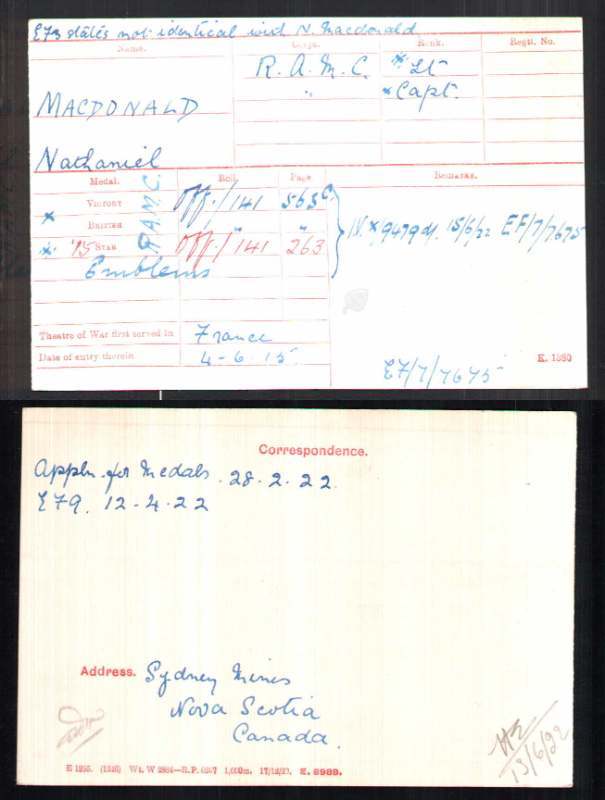 EF3 states not identical with N. Macdonald
Name. Corps. Rank. Regtl. No.
R.A.M.C. * Lt
" * Capt.
MACDONALD
Nathaniel
Medal. Roll. Page. Remarks.
VICTORY Off./141 563C
* BRITISH " "
* '15 STAR Off./141 263
R.A.M.C.
Emblems
IV. x/9479 d/. 15/6/22 EF/7/7675
Theatre of War first served in France
Date of entry therein 4-6.15.
EF/7/7675 K. 1380
Correspondence.
Appln. for Medals. 28.2.22.
EF9. 12.4.22
Address. Sydney Mines
Nova Scotia
Canada.
13/6/22
K. 8988.